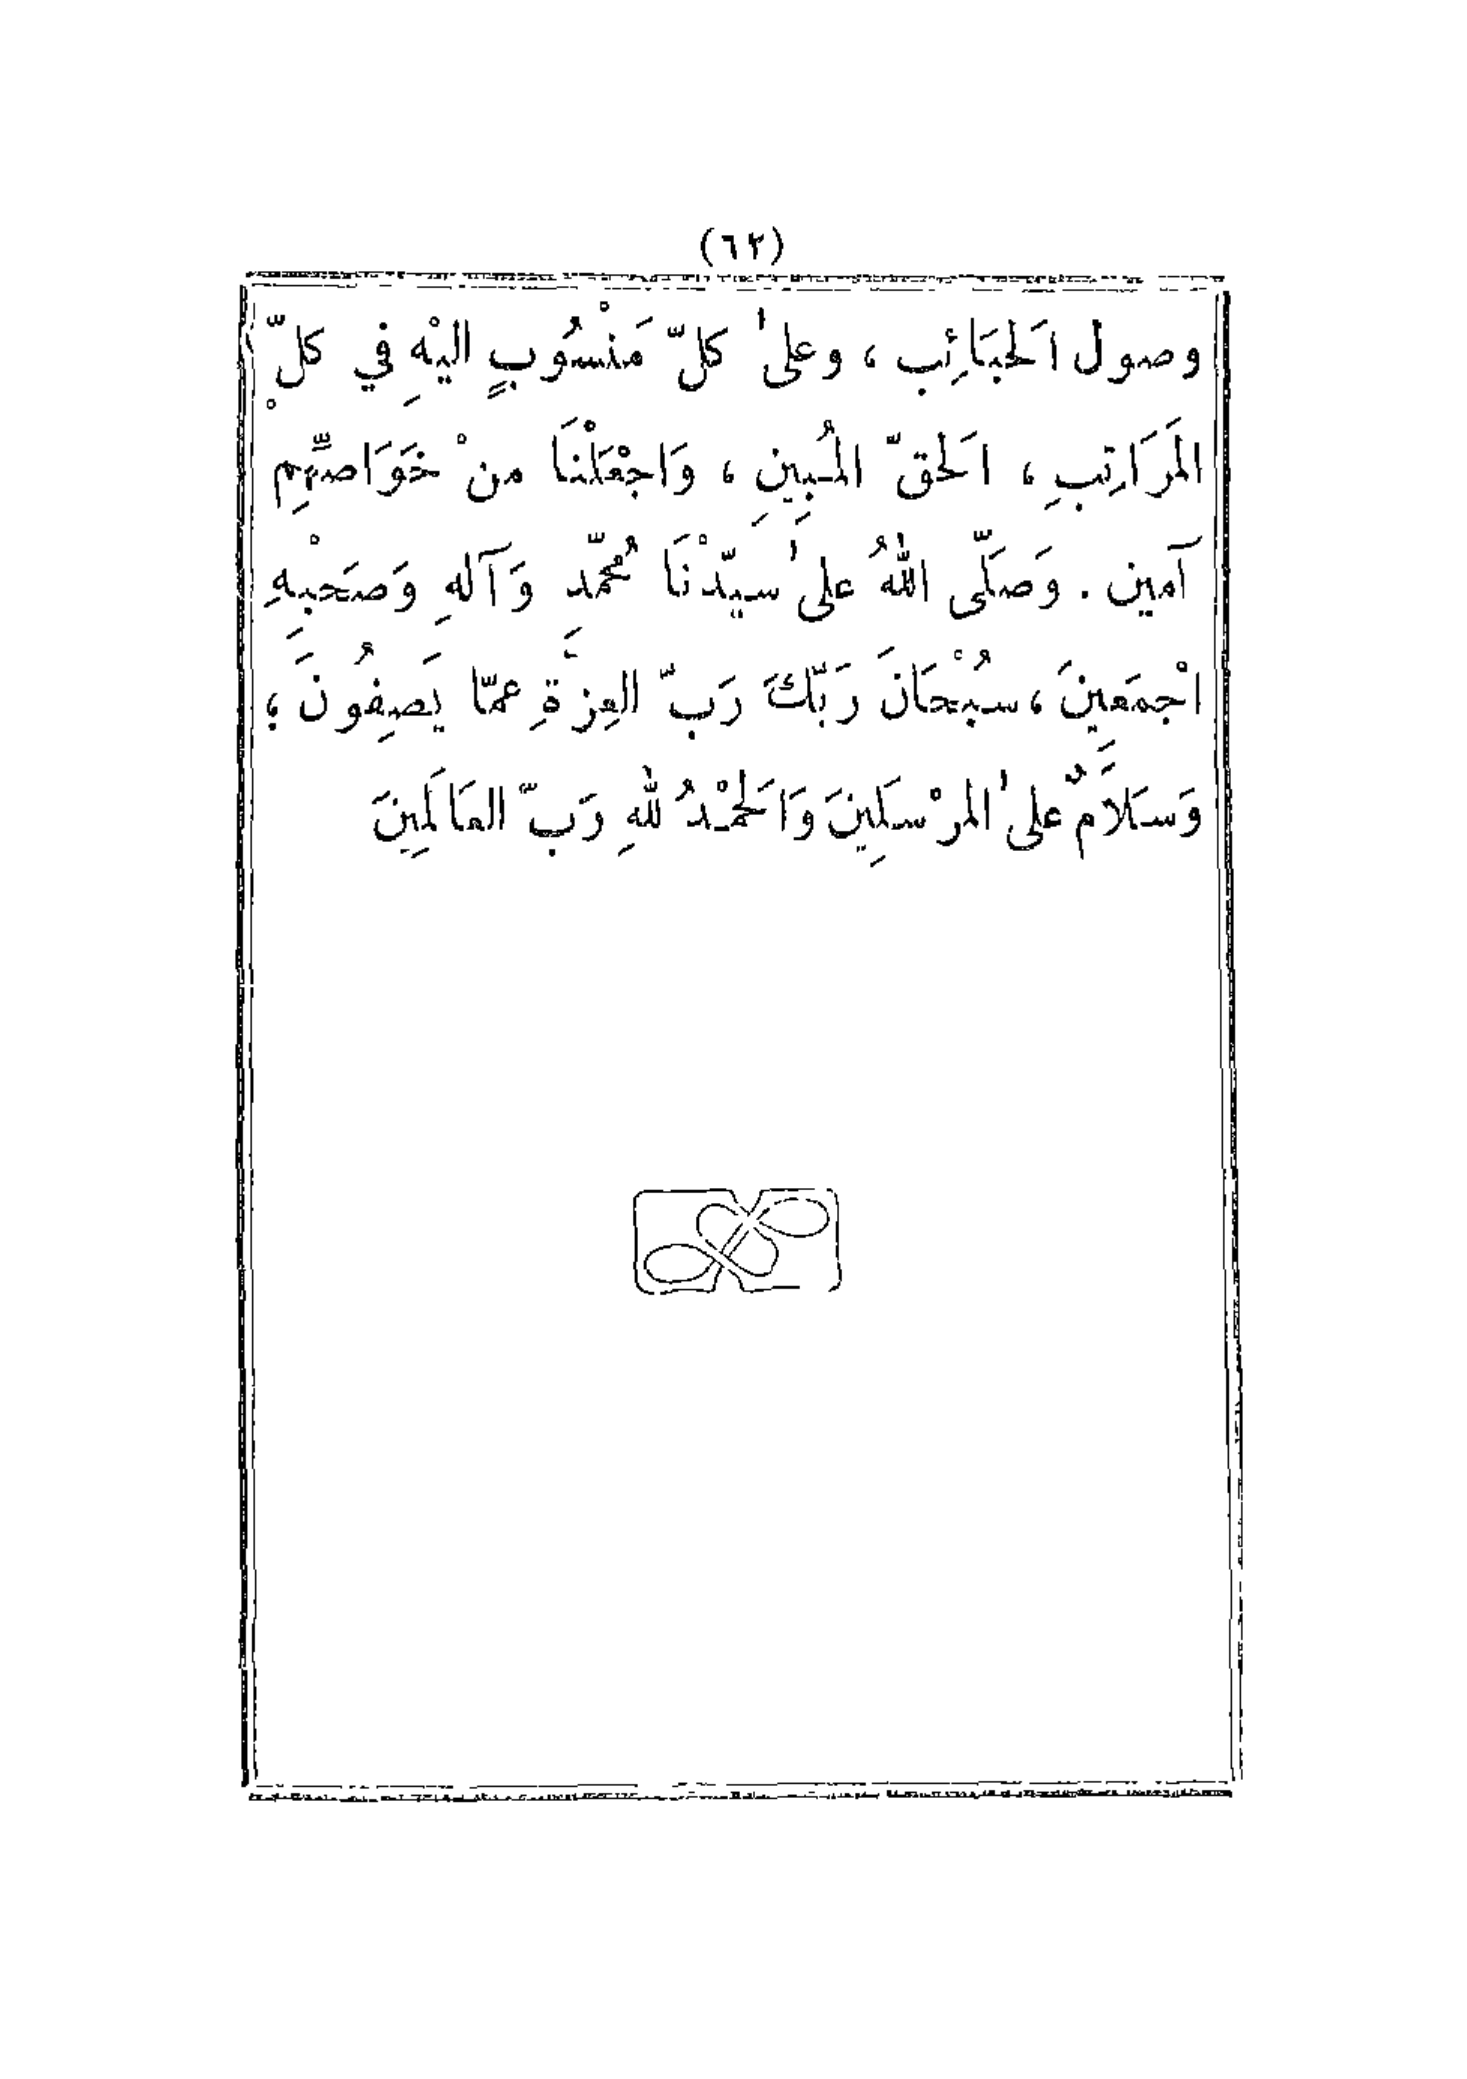 (٦٢)
وصول الَحبَائِب ، وعلىٰ كلّ مَنْسُوبٍ اليْهِ في كلّ
المَرَاتِبِ ، الَحقّ المُـبِينِ ، وَاجْعَلْنَا منْ خَوَاصِّهِمْ
آمين . وَصَلّى اللهُ علىٰ سيّدْنَا مُحمّدٍ وَآلهِ وَصَحْبِهِ
اجْمَعِينَ ، سُبْحَانَ رَبّكَ رَبّ العِزةِ عمّا يَصِفُونَ ؛
وَسَلاَمٌ علىٰ المرْسَلِينَ وَالَحمْـدُ للهِ رَبّ العَالَمِينَ